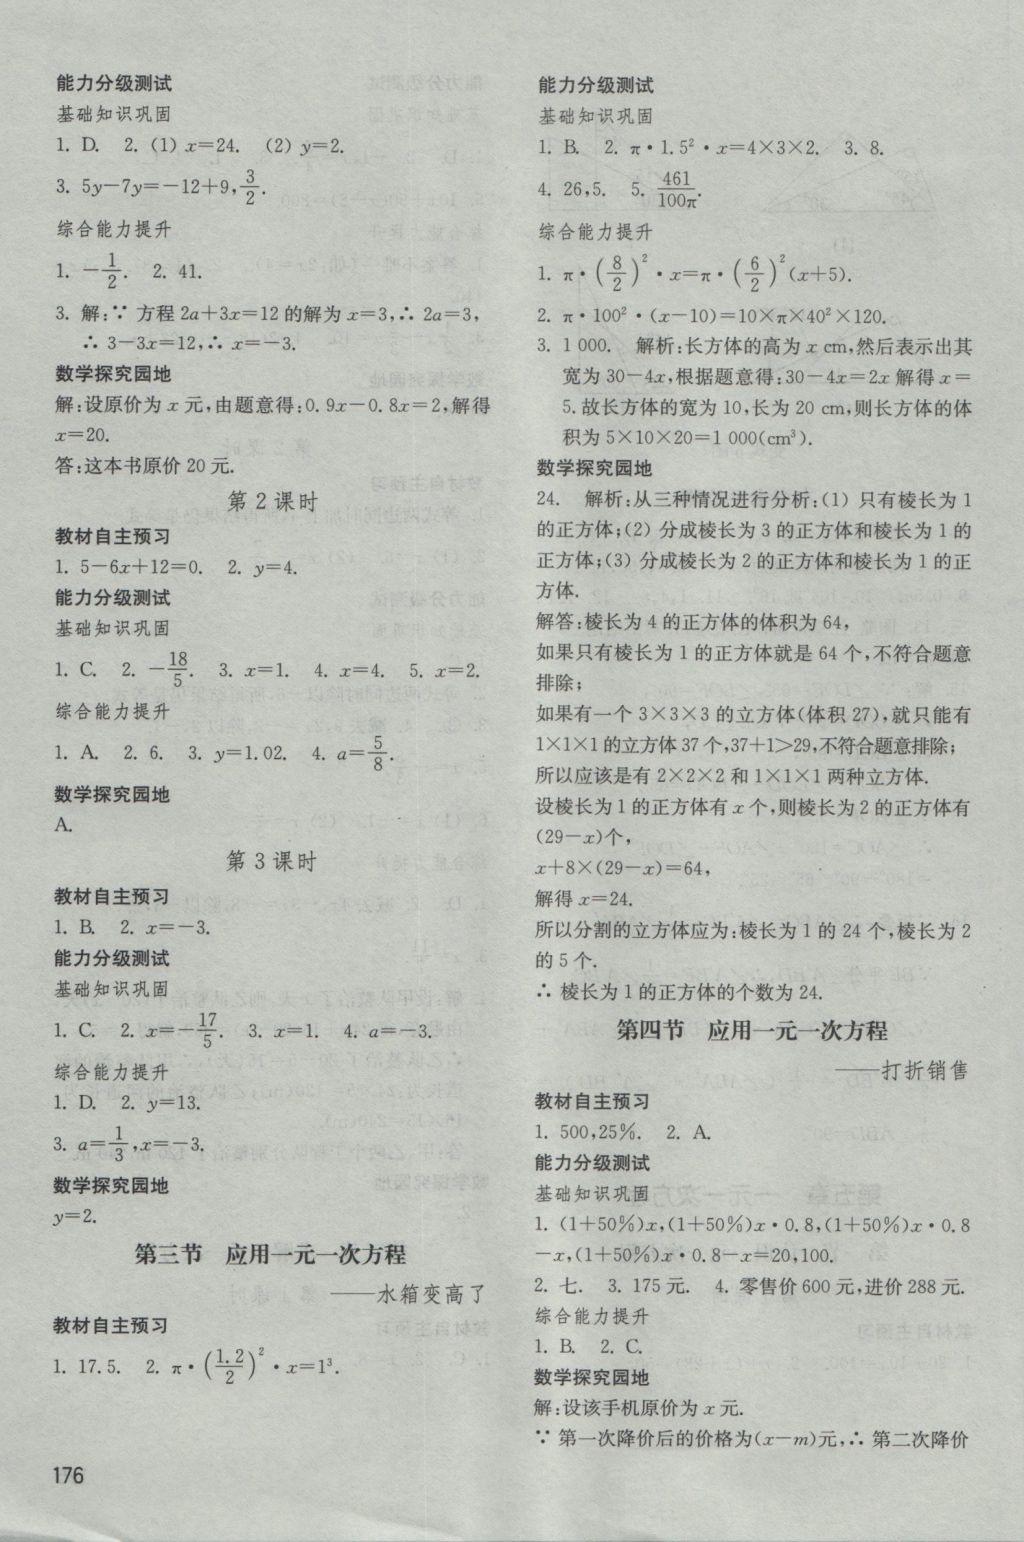 能力分级测试
基础知识巩固
1. D. 2. (1) x=24. (2) y=2.
3. 5y−7y=−12+9,3/2.
综合能力提升
1. −1/2. 2. 41.
3. 解:∵ 方程 2a+3x=12 的解为 x=3,∴ 2a=3,
∴ 3−3x=12,∴ x=−3.
数学探究园地
解:设原价为 x 元,由题意得:0.9x−0.8x=2,解得
x=20.
答:这本书原价 20 元.
第 2 课时
教材自主预习
1. 5−6x+12=0. 2. y=4.
能力分级测试
基础知识巩固
1. C. 2. −18/5. 3. x=1. 4. x=4. 5. x=2.
综合能力提升
1. A. 2. 6. 3. y=1.02. 4. a=5/8.
数学探究园地
A.
第 3 课时
教材自主预习
1. B. 2. x=−3.
能力分级测试
基础知识巩固
1. C. 2. x=−17/5. 3. x=1. 4. a=−3.
综合能力提升
1. D. 2. y=13.
3. a=1/3,x=−3.
数学探究园地
y=2.
第三节 应用一元一次方程
——水箱变高了
教材自主预习
1. 17.5. 2. π·(1.2/2)²·x=1³.
176
能力分级测试
基础知识巩固
1. B. 2. π·1.5²·x=4×3×2. 3. 8.
4. 26,5. 5. 461/100π.
综合能力提升
1. π·(8/2)²·x=π·(6/2)²(x+5).
2. π·100²·(x−10)=10×π×40²×120.
3. 1 000. 解析:长方体的高为 x cm,然后表示出其
宽为 30−4x,根据题意得:30−4x=2x 解得 x=
5.故长方体的宽为 10,长为 20 cm,则长方体的体
积为 5×10×20=1 000(cm³).
数学探究园地
24. 解析:从三种情况进行分析:(1) 只有棱长为 1
的正方体;(2) 分成棱长为 3 的正方体和棱长为 1 的
正方体;(3) 分成棱长为 2 的正方体和棱长为 1 的正
方体.
解答:棱长为 4 的正方体的体积为 64,
如果只有棱长为 1 的正方体就是 64 个,不符合题意
排除;
如果有一个 3×3×3 的立方体(体积 27),就只能有
1×1×1 的立方体 37 个,37+1>29,不符合题意排除;
所以应该是有 2×2×2 和 1×1×1 两种立方体.
设棱长为 1 的正方体有 x 个,则棱长为 2 的正方体有
(29−x)个,
x+8×(29−x)=64,
解得 x=24.
所以分割的立方体应为:棱长为 1 的 24 个,棱长为 2
的 5 个.
∴ 棱长为 1 的正方体的个数为 24.
第四节 应用一元一次方程
——打折销售
教材自主预习
1. 500,25%. 2. A.
能力分级测试
基础知识巩固
1. (1+50%)x,(1+50%)x·0.8,(1+50%)x·0.8
−x,(1+50%)x·0.8−x=20,100.
2. 七. 3. 175 元. 4. 零售价 600 元,进价 288 元.
综合能力提升
1. B. 2. C.
数学探究园地
解:设该手机原价为 x 元.
∵ 第一次降价后的价格为(x−m)元,∴ 第二次降价